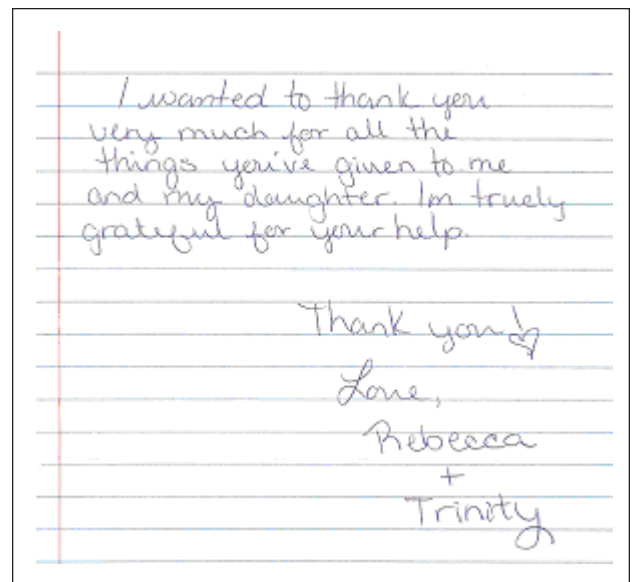 I wanted to thank you
very much for all the
things you've given to me
and my daughter. Im truely
grateful for your help.
Thank you!
Love,
Rebecca
+
Trinity